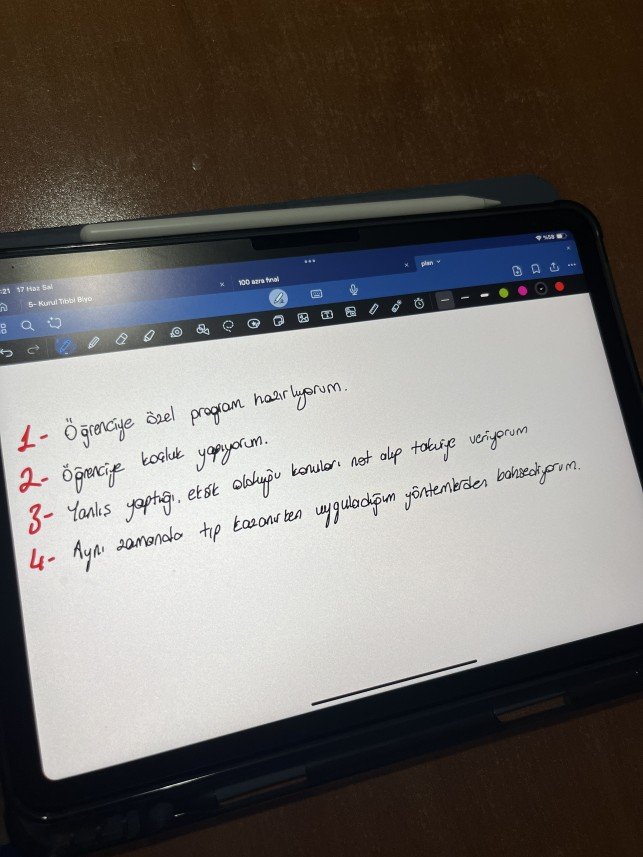 :21 17 Haz Sal
%58
5- Kurul Tıbbi Biyo
100 azra final
plan
1- Öğrenciye özel program hazırlıyorum.
2- Öğrenciye koçluk yapıyorum.
3- Yanlış yaptığı, eksik olduğu konuları not alıp takviye veriyorum
4- Aynı zamanda tıp kazanırken uyguladığım yöntemlerden bahsediyorum.